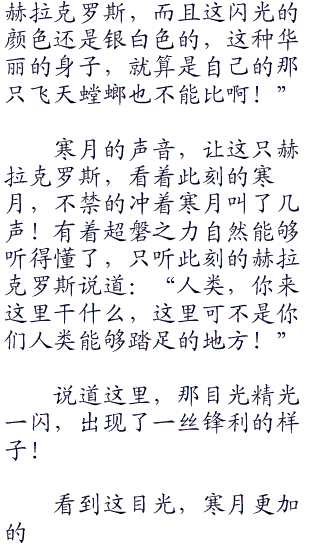 赫拉克罗斯，而且这闪光的
颜色还是银白色的，这种华
丽的身子，就算是自己的那
只飞天螳螂也不能比啊！”
寒月的声音，让这只赫
拉克罗斯，看着此刻的寒
月，不禁的冲着寒月叫了几
声！有着超磐之力自然能够
听得懂了，只听此刻的赫拉
克罗斯说道：“人类，你来
这里干什么，这里可不是你
们人类能够踏足的地方！”
说道这里，那目光精光
一闪，出现了一丝锋利的样
子！
看到这目光，寒月更加
的